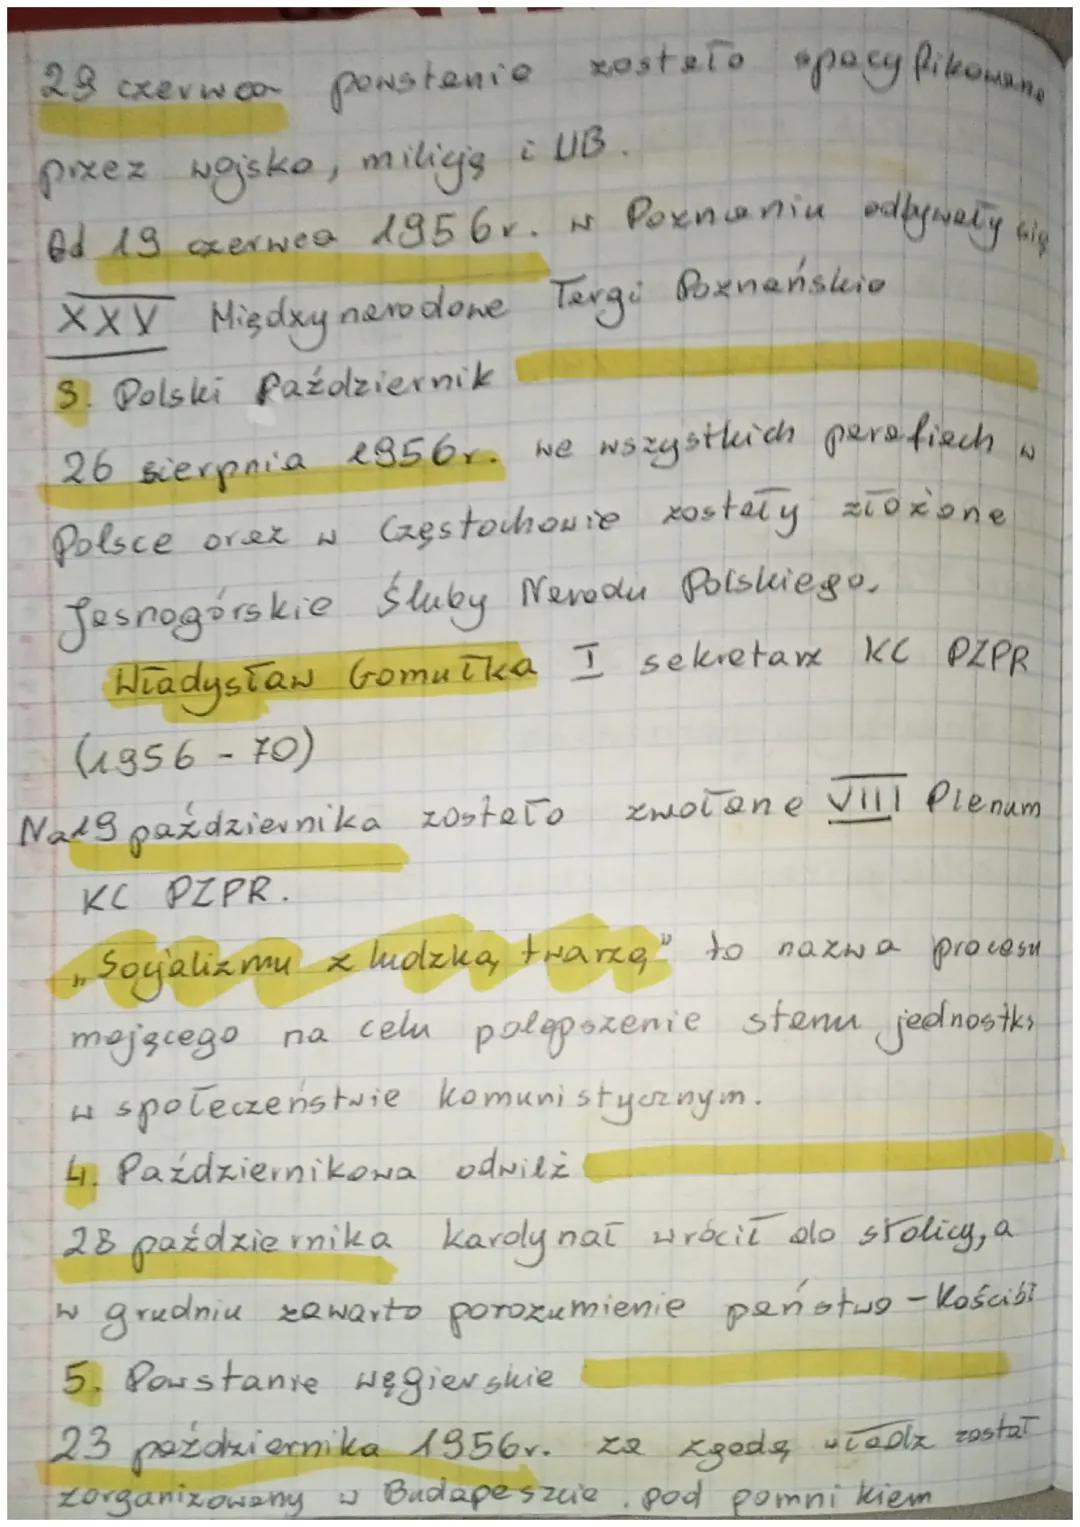 29 czerwca powstanie zostało spacyfikowane
przez wojsko, milicję i UB.
Od 19 czerwca 1956r. w Poznaniu odbywały się
XXV Międzynarodowe Targi Poznańskie
3. Polski Październik
26 sierpnia 1956r. we wszystkich parafiach w
Polsce oraz w Częstochowie zostały złożone
Jasnogórskie Śluby Narodu Polskiego.
Władysław Gomułka I sekretarz KC PZPR
(1956 - 70)
Na 19 października zostało zwołane VIII Plenum
KC PZPR.
„Socjalizmu z ludzką twarzą" to nazwa procesu
mającego na celu polepszenie stanu jednostki
w społeczeństwie komunistycznym.
4. Październikowa odwilż
28 października kardynał wrócił do stolicy, a
w grudniu zawarto porozumienie państwo - Kościół
5. Powstanie węgierskie
23 października 1956r. za zgodą władz został
zorganizowany w Budapeszcie, pod pomnikiem